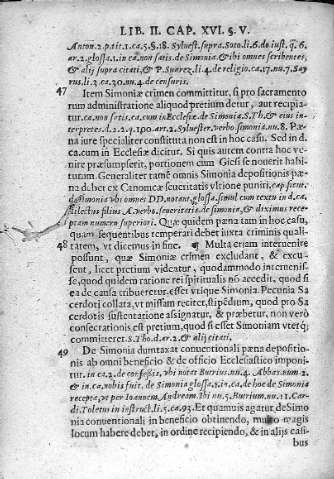 LIB. II. CAP. XVI. §. V.
Anton. 2. p. tit. 1. ca. 5. §. 18. Sylvest. supra. Soto. li. 6. de iust. q. 6.
ar. 2. glossa. 1. in ca. non satis. de Simonia. & ibi omnes scribentes,
& alij supra citati, & P. Suarez. li. 4. de religio. ca. 17. nu. 7. Say
rus. li. 2. ca. 20. nu. 4. de censuris.
47 Item Simoniæ crimen committitur, si pro sacramento
rum administratione aliquod pretium detur, aut recipia-
tur. ca. non satis. ca. cum in Ecclesiæ. de Simonia. S. Th. & eius in-
terpretes. d. 2. 2. q. 100. ar. 2. Sylvester. verbo simonia. nu. 8. Pæ-
na iure specialiter constituta non est in hoc casu. Sed in d.
ca. cum in Ecclesiæ dicitur. Si quis autem contra hoc ve-
nire præsumpserit, portionem cum Giesi se nouerit habi-
turum. Generaliter tamē omnis Simonia depositionis pæ-
na debet ex Canonicæ seueritatis vltione puniri,
ptam nuncem superiori. Quæ quidem pæna tam in hoc casu,
quàm sequentibus temperari debet iuxta criminis quali-
48 tatem, vt dicemus in fine. ¶ Multa etiam interuenire
possunt, quæ Simoniæ crimen excludant, & excu-
sent, licet pretium videatur, quodammodo interuenis-
se, quod quidem ratione rei spiritualis nō accedit, quod si
ea de causa tribueretur. esset vtique Simonia. Pecunia Sa
cerdoti collata, vt missam recitet, stipēdium, quod pro Sa
cerdotis sustentatione assignatur, & præbetur, non verò
consecrationis est pretium, quod si esset Simoniam vterq;
committeret. S. Tho. d. ar. 2. & alij citati.
49 De Simonia dumtaxat conuentionali pæna depositio-
nis ab omni beneficio & de officio Ecclesiastico imponi
tur. in ca. 2. de confessis, vbi notet Burrius. nu. 4. Abbas. num 2.
& in ca. nobis fuit. de Simonia glossa. 2. in ca. de hoc de Simonia
recepta, vt per Ioannem Andream. ibi nu. 5. Burrium. nu. 11. Car-
di. Toletus in instruct. li. 5. ca. 93. Et quamuis agatur de Simo
nia conuentionali in beneficio obtinendo, multo magis
locum habere debet, in ordine recipiendo, & in alijs casi-
bus